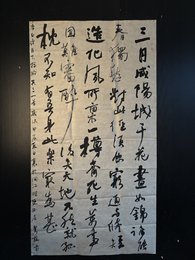 三月咸陽城千花晝如錦誰能
春獨愁對此徑須飲窮通與修短
造化夙所稟一樽齊死生萬事
固難審醉後失天地兀然就孤
枕不知有吾身此樂最為甚